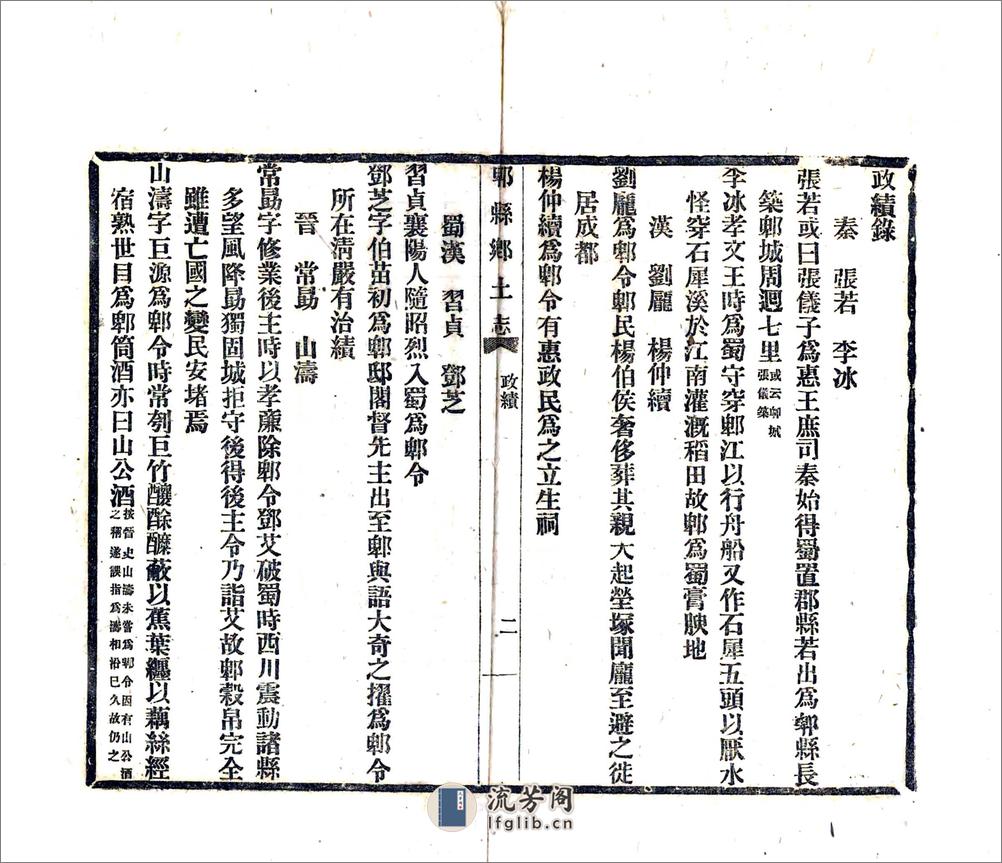 政績錄
秦 張若 李冰
張若或曰張儀子爲惠王庶司秦始得蜀置郡縣若出爲郫縣長
築郫城周迴七里或云郫城張儀築
李冰孝文王時爲蜀守穿郫江以行舟船又作石犀五頭以厭水
怪穿石犀溪於江南灌溉稻田故郫爲蜀膏腴地
漢 劉龐 楊仲續
劉龐爲郫令郫民楊伯侯奢侈葬其親大起塋塚聞龐至避之徙
居成都
楊仲續爲郫令有惠政民爲之立生祠
郫縣鄉土志 政績 二
蜀漢 習貞 鄧芝
習貞襄陽人隨昭烈入蜀爲郫令
鄧芝字伯苗初爲郫邸閣督先主出至郫與語大奇之擢爲郫令
所在淸嚴有治績
晉 常勗 山濤
常勗字修業後主時以孝廉除郫令鄧艾破蜀時西川震動諸縣
多望風降勗獨固城拒守後得後主令乃詣艾故郫穀帛完全
雖遭亡國之變民安堵焉
山濤字巨源爲郫令時常刳巨竹釀酴醾蔽以蕉葉纏以藕絲經
宿熟世目爲郫筒酒亦曰山公酒按晉史山濤未嘗爲郫令因有山公酒之稱遂誤指爲濤相沿已久故仍之
流芳阁
lfglib.cn